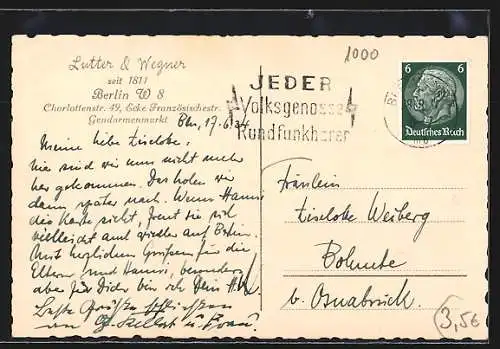 1000
Lutter & Wegner
seit 1811
Berlin W 8
Charlottenstr. 49, Ecke Französischestr.
Gendarmenmarkt
JEDER
Volksgenosse
Rundfunkhörer
6 6
Deutsches Reich
Bln, 17.6.34
Meine liebe Liselotte!
hier sind wir nun nicht mehr
her gekommen. Das holen wir
dann später nach. Wenn Hanni
die Karte sieht, freut sie sich
vielleicht auch wieder auf Berlin.
Mit herzlichen Grüßen für die
Eltern und Hanni, besonders
aber für Dich bin ich Dein
Beste Grüße
an u. Frau.
Fräulein
Liselotte Weiberg
Bohmte
b. Osnabrück.
3,50